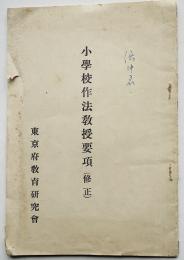 小學校作法教授要項(修正)
東京府敎育硏究會